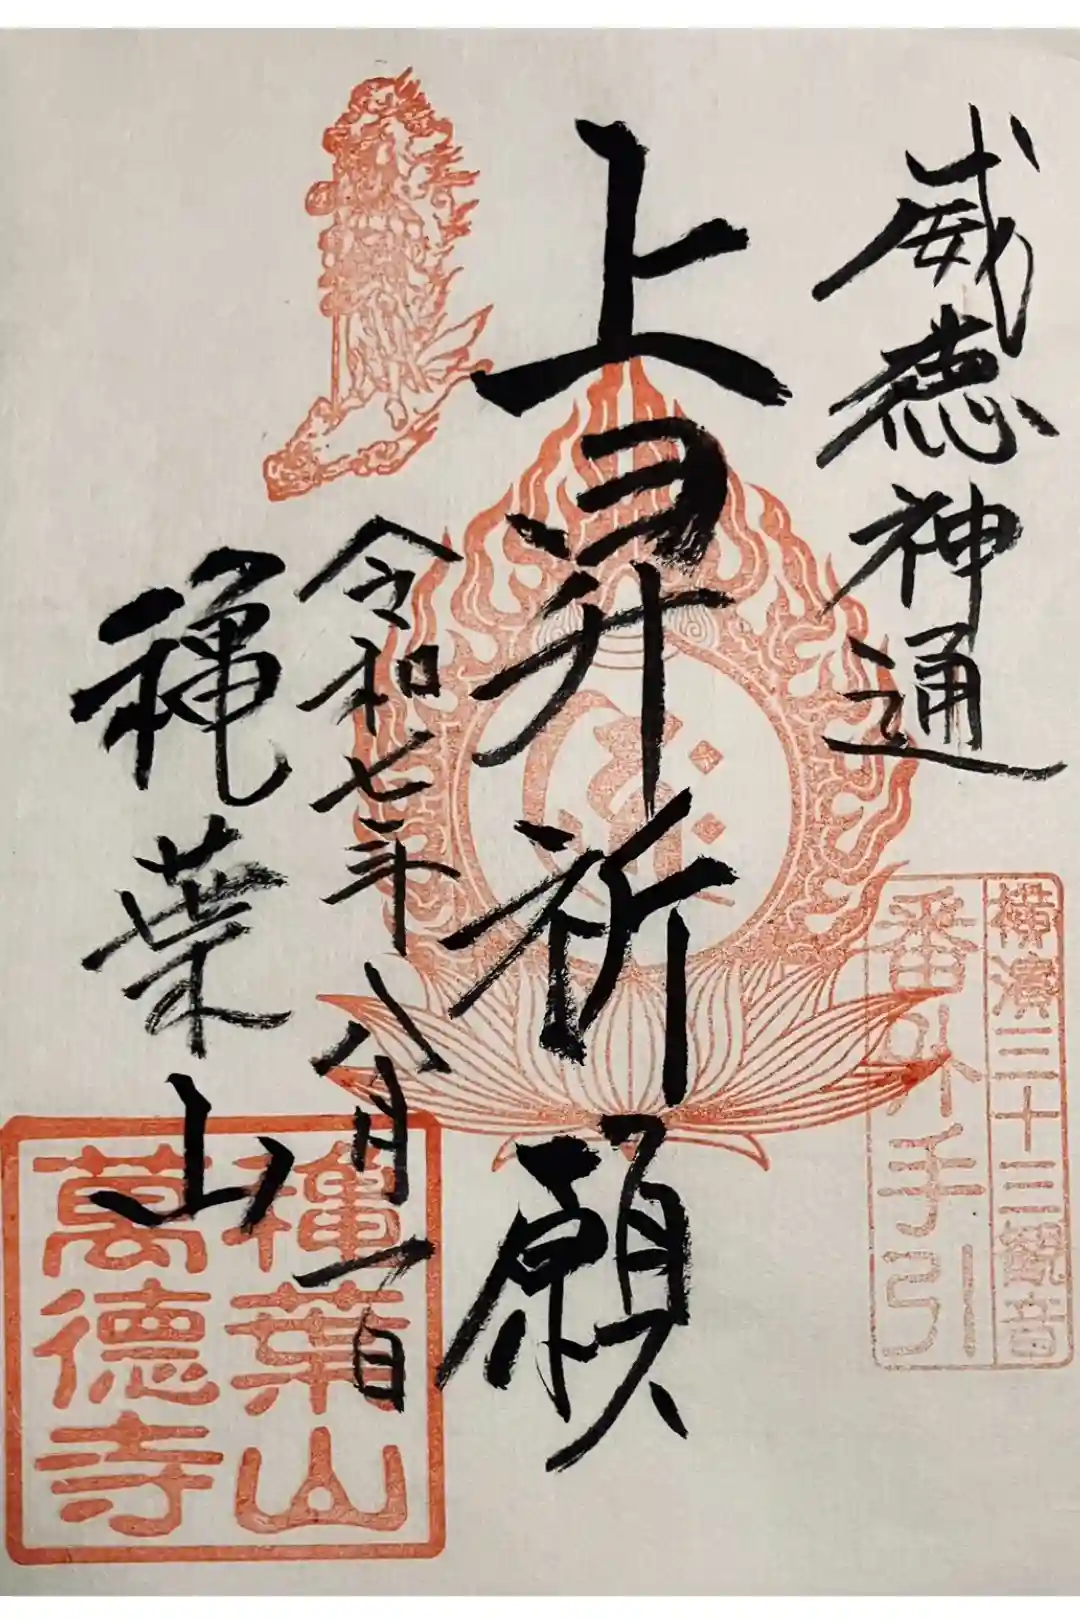 威徳神通
横濱三十三観音
番外手引
上昇祈願
令和七年八月一日
穐葉山
穐葉山
萬徳寺